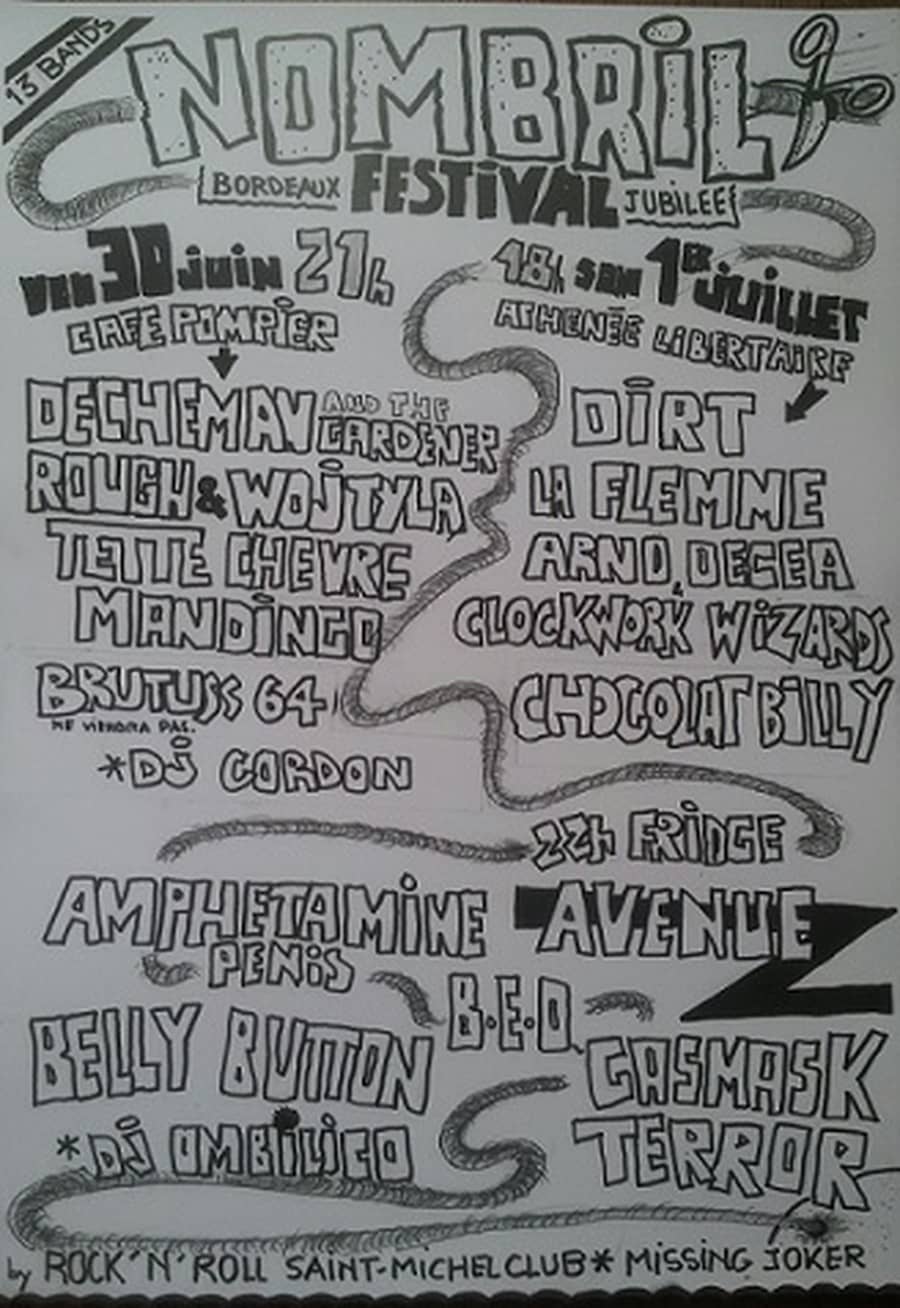 13 BANDS
NOMBRIL
BORDEAUX FESTIVAL JUBILEE
VEN 30 juin 21h
CAFE POMPIER
DECHEMAN AND THE GARDENER
ROUGH & WOJTYLA
TETTE CHEVRE
MANDINGO
BRUTUSS 64
NE VIENDRA PAS.
*DJ CORDON
18h SAM 1ER JUILLET
ATHENÉE LIBERTAIRE
DIRT
LA FLEMME
ARNO, DECEA
CLOCKWORK WIZARDS
CHOCOLAT BILLY
22h FRIDGE
AMPHETAMINE
PENIS
AVENUE Z
B.E.D.
BELLY BUTTON
GASMASK
TERROR
*DJ OMBILICO
by ROCK'N'ROLL SAINT-MICHEL CLUB * MISSING JOKER